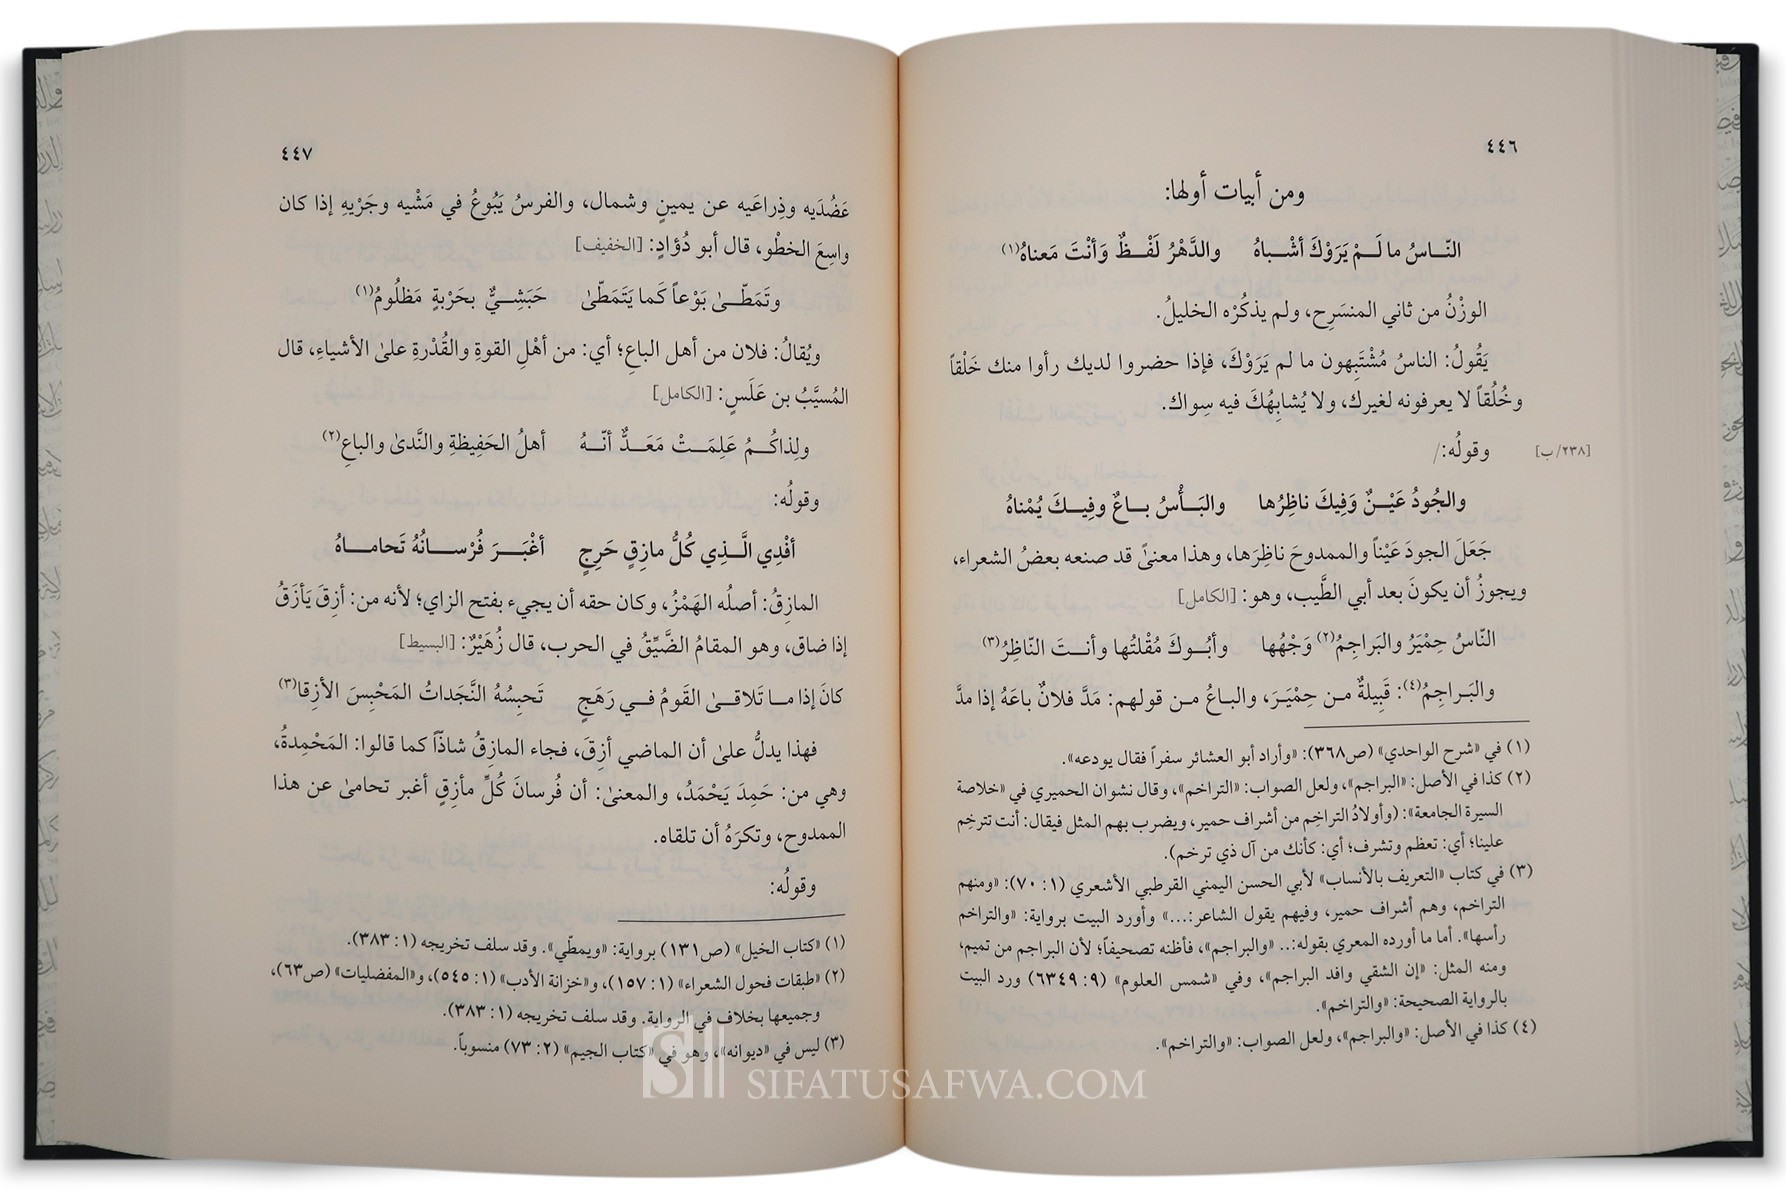 ٤٤٦
ومن أبيات أولها:
النّاسُ ما لَمْ يَرَوْكَ أشْباهُ والدَّهْرُ لَفْظٌ وَأنْتَ مَعناهُ(١)
الوزْنُ من ثاني المنسَرِح، ولم يذكُرْه الخليلُ.
يَقُولُ: الناسُ مُشْتَبِهون ما لم يَرَوْكَ، فإذا حضروا لديك رأوا منك خَلْقاً
وخُلُقاً لا يعرفونه لغيرك، ولا يُشابِهُكَ فيه سِواك.
وقولُه:/ [٢٣٨/ب]
والجُودُ عَيْنٌ وَفِيكَ ناظِرُها والبَأْسُ باعٌ وفِيكَ يُمْناهُ
جَعَلَ الجودَ عَيْناً والممدوحَ ناظِرَها، وهذا معنىً قد صنعه بعضُ الشعراء،
ويجوزُ أن يكونَ بعد أبي الطَّيب، وهو: [الكامل]
النّاسُ حِمْيَرُ والبَراجِمُ(٢) وَجْهُها وأبُوكَ مُقْلتُها وأنتَ النّاظِرُ(٣)
والبَراجِمُ(٤): قَبِيلةٌ من حِمْيَرَ، والباعُ من قولهم: مَدَّ فلانٌ باعَهُ إذا مدَّ
(١) في «شرح الواحدي» (ص٣٦٨): «وأراد أبو العشائر سفراً فقال يودعه».
(٢) كذا في الأصل: «البراجم»، ولعل الصواب: «التراخم»، وقال نشوان الحميري في «خلاصة
السيرة الجامعة»: (وأولادُ التراخِم من أشراف حمير، ويضرب بهم المثل فيقال: أنت تترخِم
علينا؛ أي: تعظم وتشرف؛ أي: كأنك من آل ذي ترخم).
(٣) في كتاب «التعريف بالأنساب» لأبي الحسن اليمني القرطبي الأشعري (١: ٧٠): «ومنهم
التراخم، وهم أشراف حمير، وفيهم يقول الشاعر:...» وأورد البيت برواية: «والتراخم
رأسها». أما ما أورده المعري بقوله:.. «والبراجم»، فأظنه تصحيفاً؛ لأن البراجم من تميم،
ومنه المثل: «إن الشقي وافد البراجم»، وفي «شمس العلوم» (٩: ٦٣٤٩) ورد البيت
بالرواية الصحيحة: «والتراخم».
(٤) كذا في الأصل: «والبراجم»، ولعل الصواب: «والتراخم».
٤٤٧
عَضُدَيه وذِراعَيه عن يمينٍ وشمال، والفرسُ يَبُوعُ في مَشْيه وجَرْيهِ إذا كان
واسِعَ الخطْو، قال أبو دُؤادٍ: [الخفيف]
وتَمَطّىٰ بَوْعاً كَما يَتَمَطّىٰ حَبَشِيٌّ بحَرْبةٍ مَظلُومُ(١)
ويُقالُ: فلان من أهل الباعِ؛ أي: من أهْلِ القوةِ والقُدْرةِ علىٰ الأشياءِ، قال
المُسيَّبُ بن عَلَسٍ: [الكامل]
ولِذاكُمُ عَلِمَتْ مَعَدٌّ أنّهُ أهلُ الحَفِيظةِ والنَّدىٰ والباعِ(٢)
وقولُه:
أفْدِي الَّذِي كُلُّ مازِقٍ حَرِجٍ أغْبَرَ فُرْسانُهُ تَحاماهُ
المازِقُ: أصلُه الهَمْزُ، وكان حقه أن يجيء بفتح الزاي؛ لأنه من: أزِقَ يَأزَقُ
إذا ضاق، وهو المقامُ الضَّيِّقُ في الحرب، قال زُهَيْرٌ: [البسيط]
كانَ إذا ما تَلاقىٰ القَومُ في رَهَجٍ تَحبِسُهُ النَّجَداتُ المَحْبِسَ الأزِقا(٣)
فهذا يدلُّ علىٰ أن الماضي أزِقَ، فجاء المازِقُ شاذّاً كما قالوا: المَحْمِدةُ،
وهي من: حَمِدَ يَحْمَدُ، والمعنىٰ: أن فُرسانَ كُلِّ مأزِقٍ أغبر تحامىٰ عن هذا
الممدوح، وتكرَهُ أن تلقاه.
وقولُه:
(١) «كتاب الخيل» (ص١٣١) برواية: «ويمطّي». وقد سلف تخريجه (١: ٣٨٣).
(٢) «طبقات فحول الشعراء» (١: ١٥٧)، و«خزانة الأدب» (١: ٥٤٥)، و«المفضليات» (ص٦٣)،
وجميعها بخلاف في الرواية. وقد سلف تخريجه (١: ٣٨٣).
(٣) ليس في «ديوانه»، وهو في «كتاب الجيم» (٢: ٧٣) منسوباً.
SIFATUSAFWA.COM